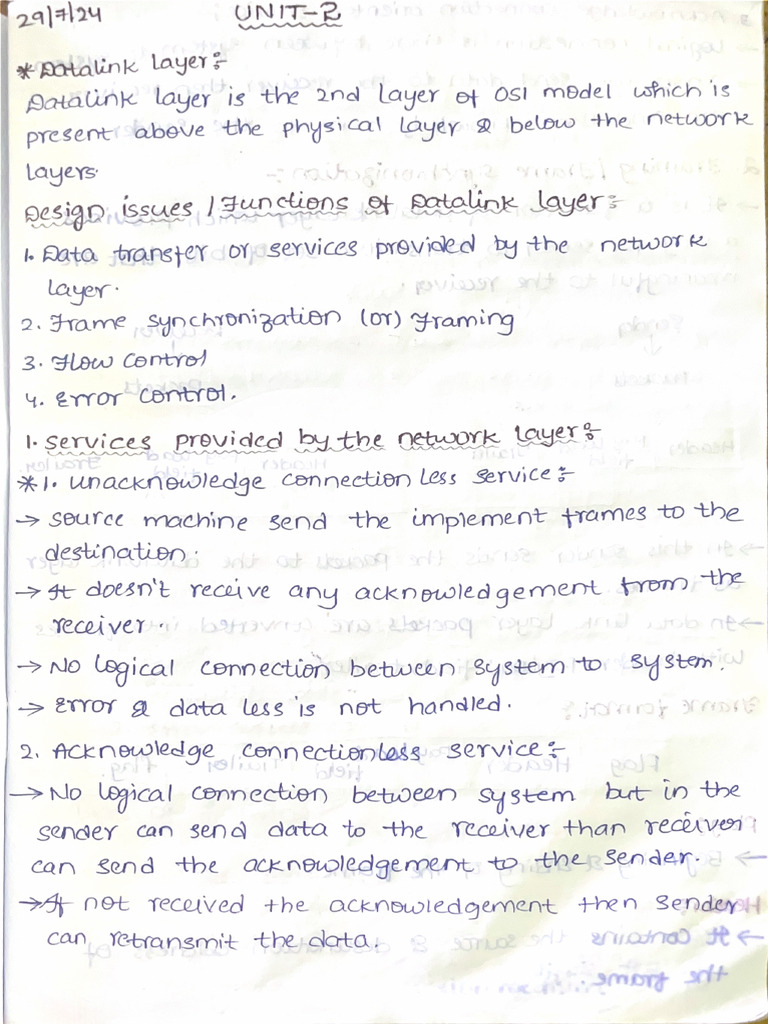 29/7/24
UNIT-2
* Datalink layer :-
Datalink layer is the 2nd layer of OSI model which is
present above the physical layer & below the network
layers.
Design issues / Functions of Datalink layer :-
1. Data transfer or services provided by the network
layer.
2. Frame synchronization (or) Framing
3. Flow control
4. Error control.
1. services provided by the network layer :-
*1. unacknowledge connection less service :-
→ source machine send the implement frames to the
destination.
→ It doesn't receive any acknowledgement from the
receiver.
→ No logical connection between system to system.
→ Error & data less is not handled.
2. Acknowledge connectionless service :-
→ No logical connection between system but in the
sender can send data to the receiver than receiver
can send the acknowledgement to the sender.
→ If not received the acknowledgement then sender
can retransmit the data.